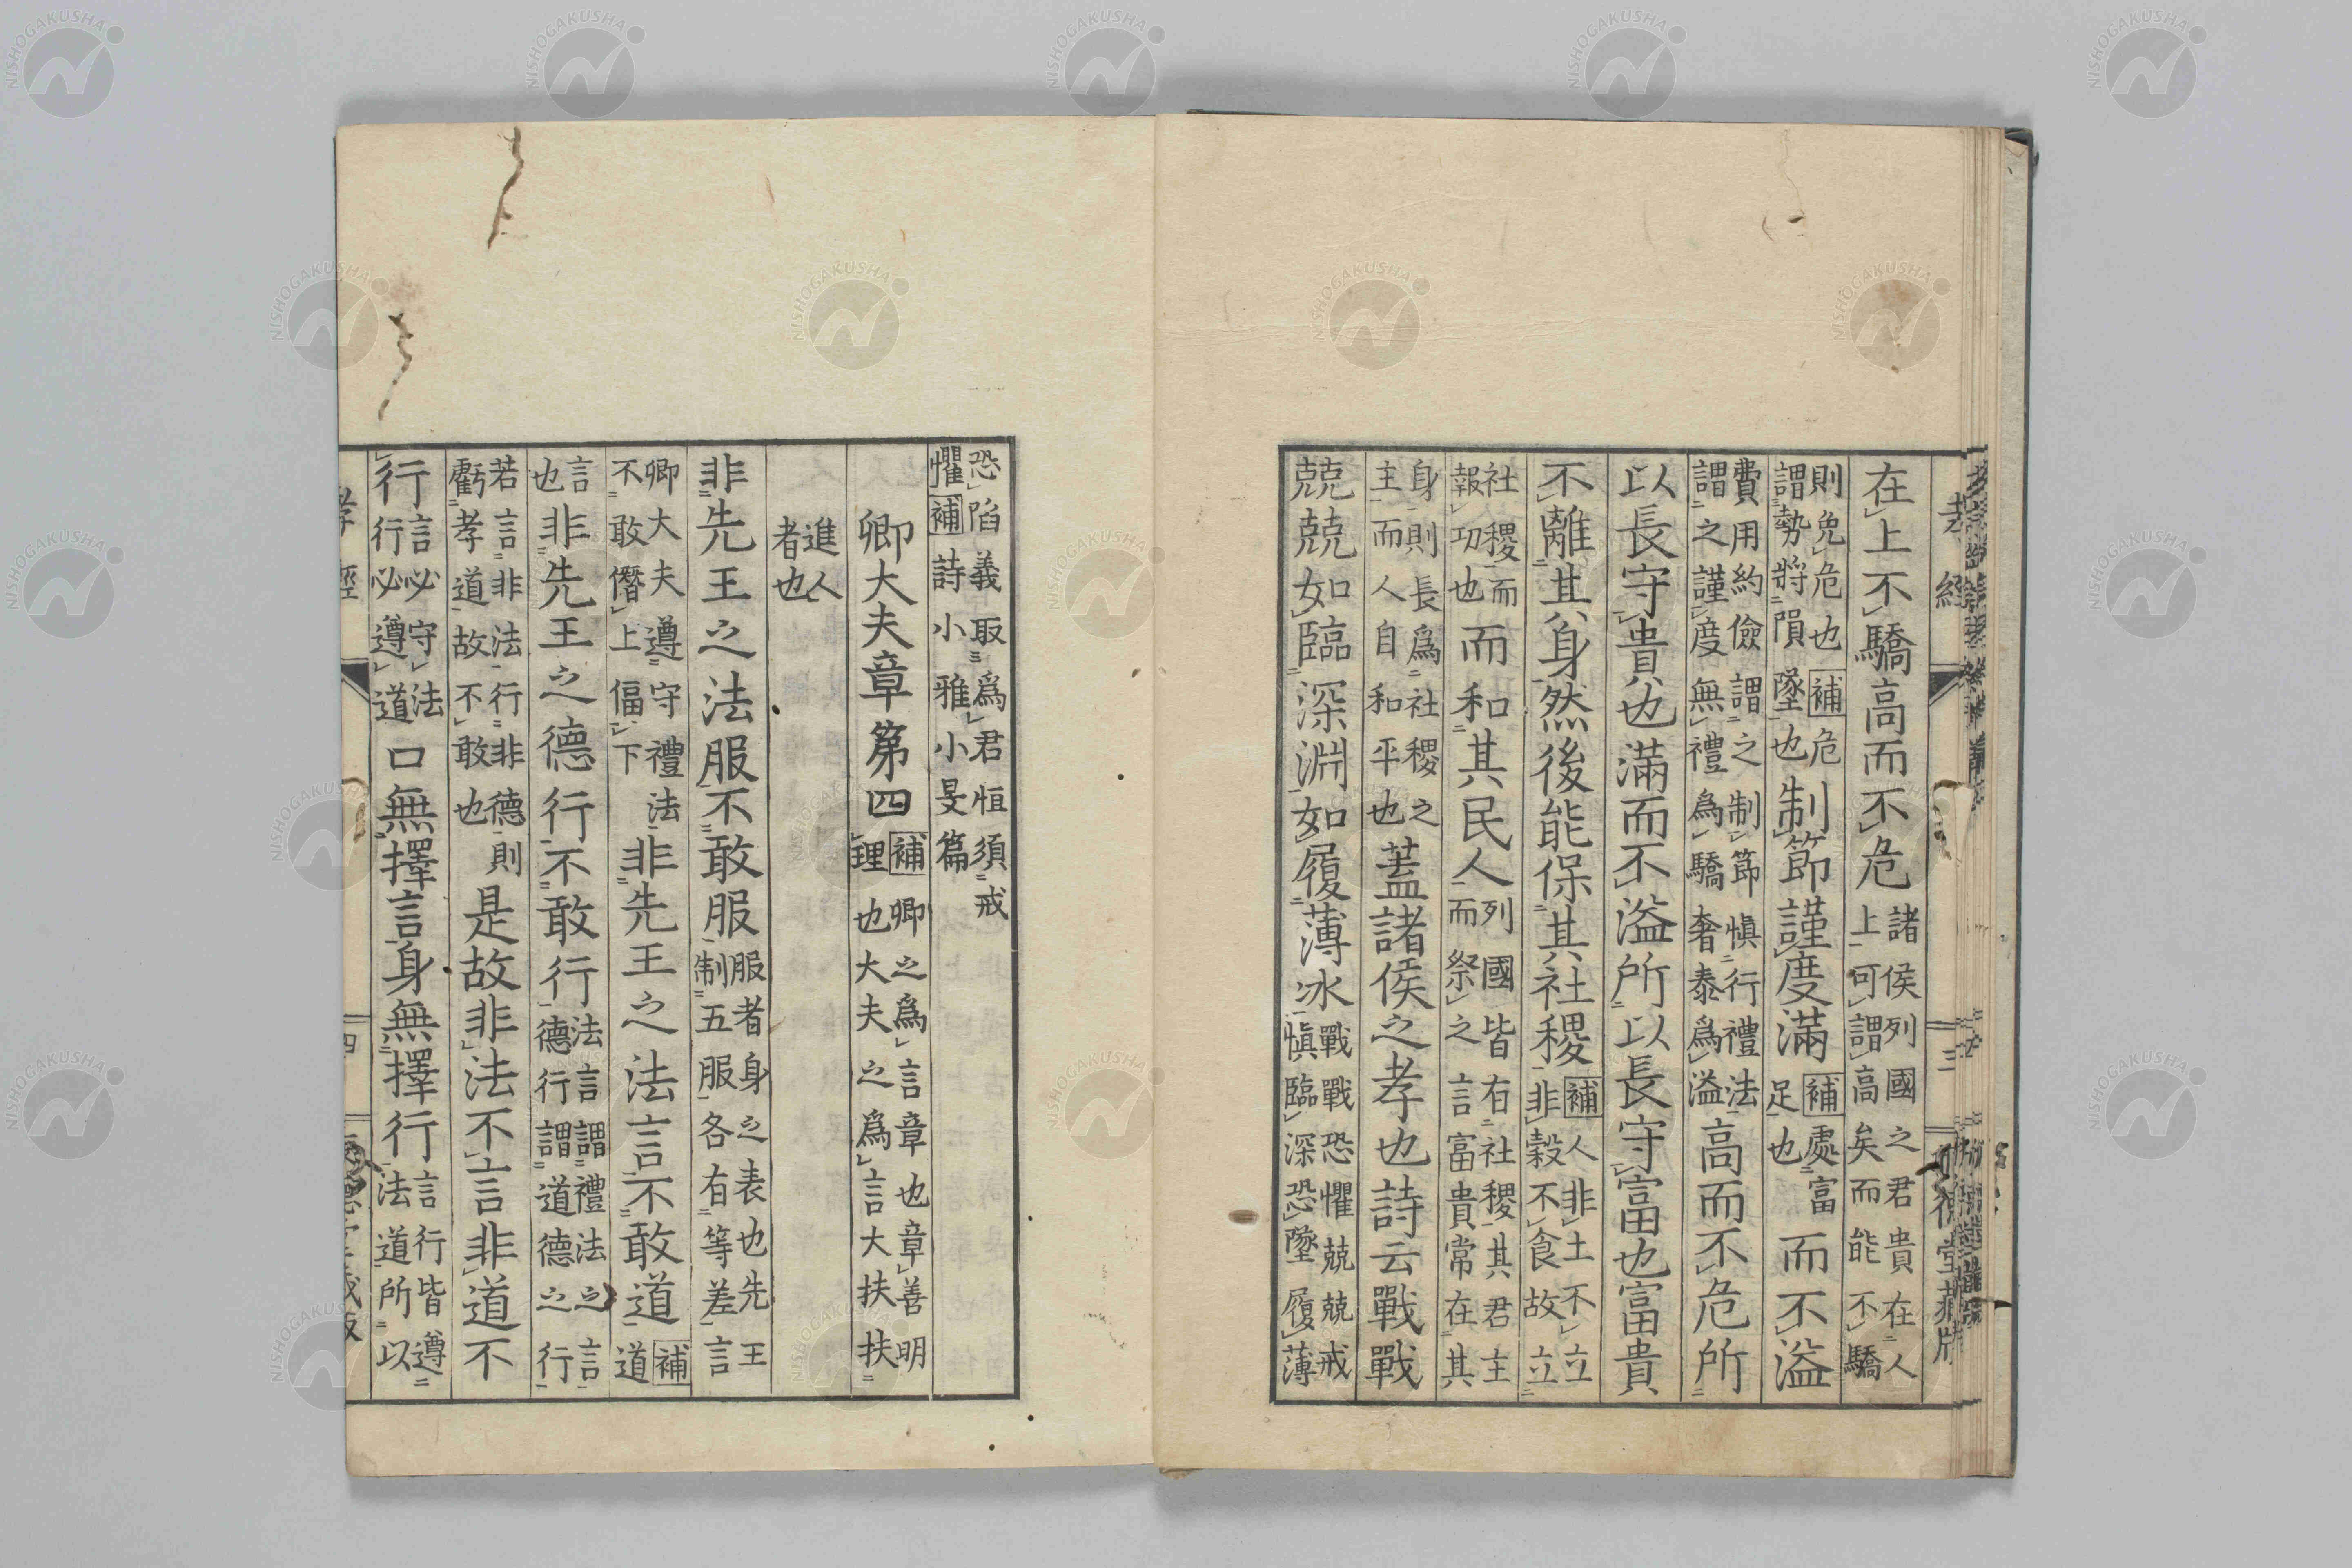 在上不驕高而不危 諸侯列國之君貴在人
上可謂高矣而能不驕
則免危也補危
謂勢將隕墜也 制節謹度滿 補處富
足也 而不溢
費用約儉謂之制節慎行禮法
謂之謹度無禮爲驕奢泰爲溢 高而不危所
以長守貴也滿而不溢所以長守富也富貴
不離其身然後能保其社稷 補人非土不立
非穀不食故立
社稷而
報功也 而和其民人 列國皆有社稷其君主
而祭之言富貴常在其
身則長爲社稷之
主而人自和平也 蓋諸侯之孝也詩云戰戰
兢兢如臨深淵如履薄冰 戰戰恐懼兢兢戒
慎臨深恐墜履薄
孝經
三
恐陷義取爲君恒須戒
懼補詩小雅小旻篇
卿大夫章第四 補卿之爲言章也章善明
理也大夫之爲言大扶扶
進人
者也
非先王之法服不敢服 服者身之表也先王
制五服各有等差言
卿大夫遵守禮法
不敢僭上偪下 非先王之法言不敢道 補
道
言
也 非先王之德行不敢行 法言謂禮法之言
德行謂道德之行
若言非法行非德則
虧孝道故不敢也 是故非法不言非道不
行 言必守法
行必遵道 口無擇言身無擇行 言行皆遵
法道所以
孝經
四